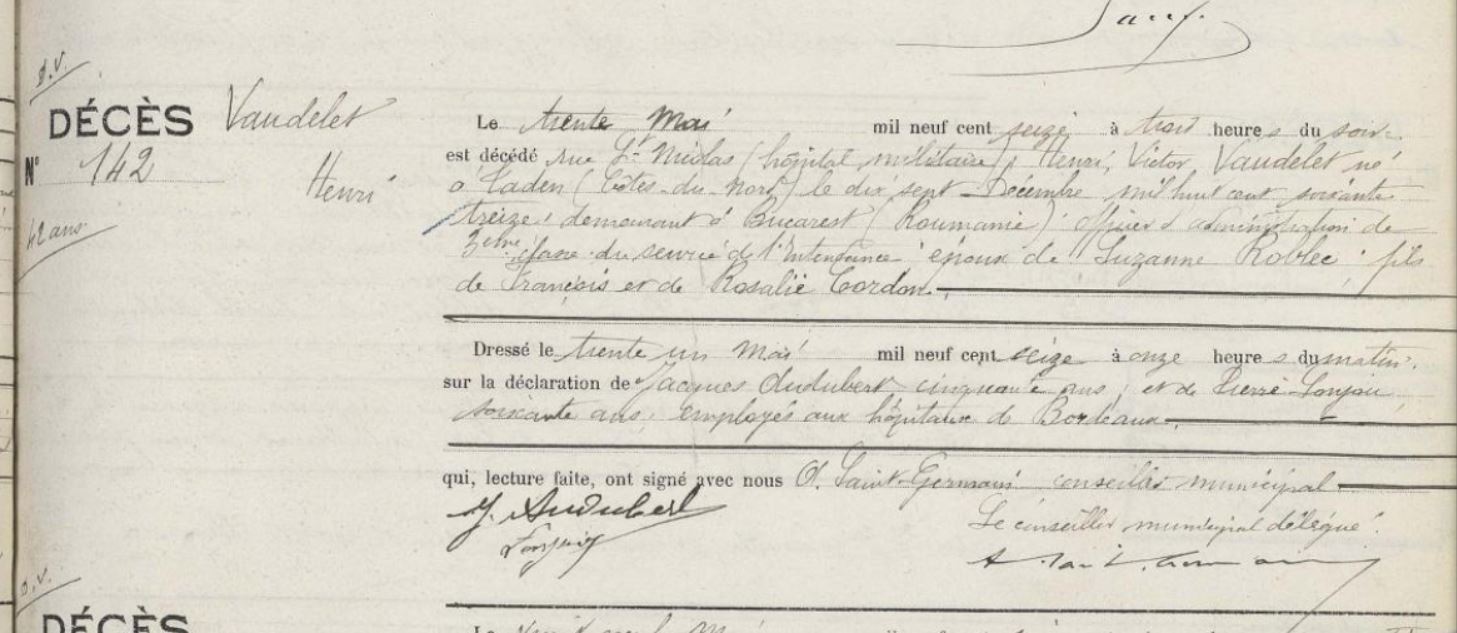 D.V.
DÉCÈS Vaudelet
N° 142
Henri
42 ans
Le trente Mai mil neuf cent seize, à trois heures du soir
est décédé rue St Nicolas (hôpital militaire), Henri, Victor Vaudelet né
à Taden (Côtes-du-Nord) le dix sept Décembre mil huit cent soixante
treize, demeurant à Bucarest (Roumanie), officier d'administration de
3ème classe du service de l'Intendance, époux de Suzanne Roblec, fils
de François et de Rosalie Cordon.
Dressé le trente un Mai mil neuf cent seize à onze heures du matin,
sur la déclaration de Jacques Audubert cinquante ans, et de Pierre Lonjou
soixante ans, employés aux hôpitaux de Bordeaux
qui, lecture faite, ont signé avec nous A. Saint-Germain conseiller municipal
J. Audubert
Le conseiller municipal délégué.
Lonjou
D.V.
DÉCÈS
Le Mai